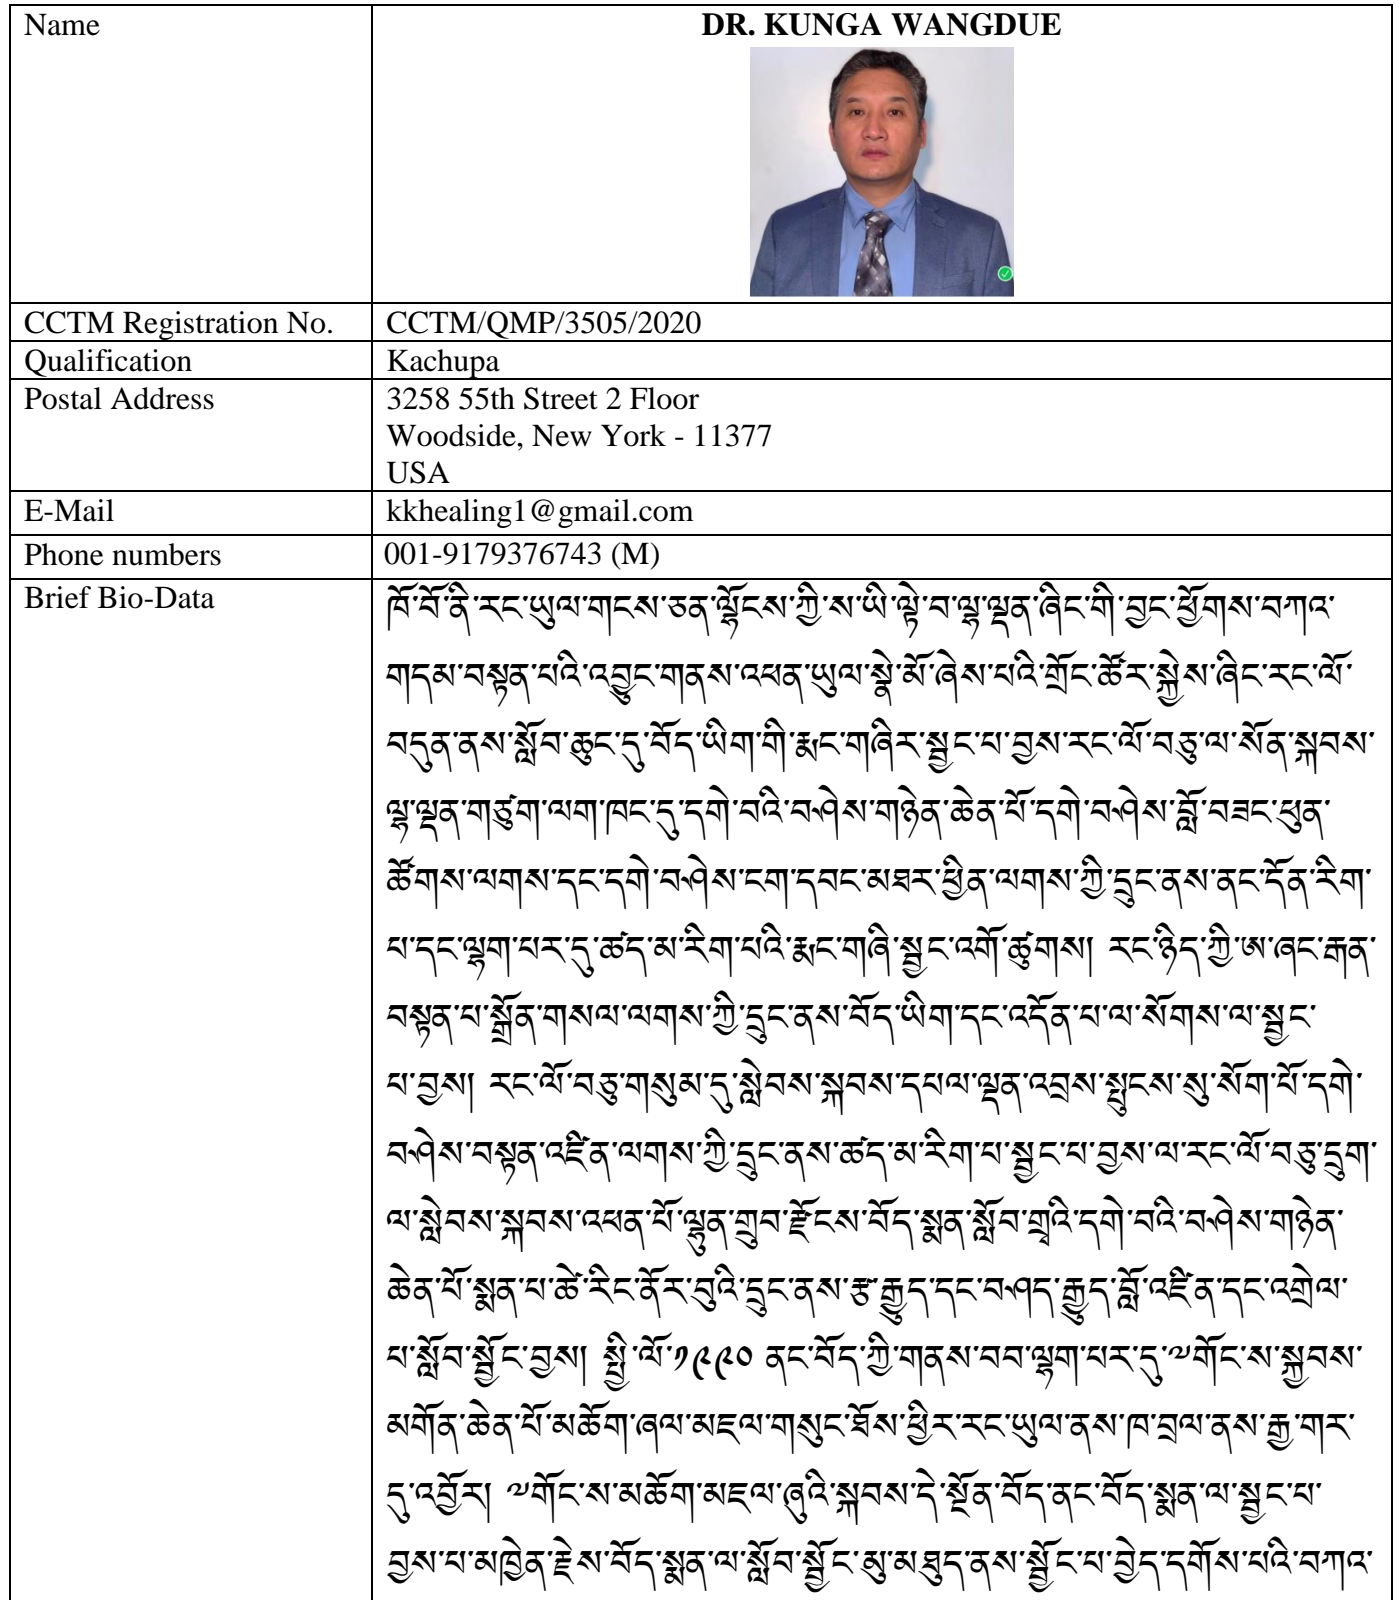 Name
DR. KUNGA WANGDUE
CCTM Registration No.
CCTM/QMP/3505/2020
Qualification
Kachupa
Postal Address
3258 55th Street 2 Floor
Woodside, New York - 11377
USA
E-Mail
kkhealing1@gmail.com
Phone numbers
001-9179376743 (M)
Brief Bio-Data
ཁོ་བོ་ནི་རང་ཡུལ་གངས་ཅན་ལྗོངས་ཀྱི་ས་ཡི་ལྟེ་བ་ལྷ་ལྡན་ཞིང་གི་བྱང་ཕྱོགས་བཀའ་
གདམ་བསྟན་པའི་འབྱུང་གནས་འཕན་ཡུལ་སྣེ་མོ་ཞེས་པའི་གྲོང་ཚོར་སྐྱེས་ཞིང་རང་ལོ་
བདུན་ནས་སློབ་ཆུང་དུ་བོད་ཡིག་གི་རྨང་གཞིར་སྦྱང་པ་བྱས་རང་ལོ་བཅུ་ལ་སོན་སྐབས་
ལྷ་ལྡན་གཙུག་ལག་ཁང་དུ་དགེ་བའི་བཤེས་གཉེན་ཆེན་པོ་དགེ་བཤེས་བློ་བཟང་ཕུན་
ཚོགས་ལགས་དང་དགེ་བཤེས་ངག་དབང་མཐར་ཕྱིན་ལགས་ཀྱི་དྲུང་ནས་ནང་དོན་རིག་
པ་དང་ལྷག་པར་དུ་ཚད་མ་རིག་པའི་རྨང་གཞི་སྦྱང་འགོ་ཚུགས། རང་ཉིད་ཀྱི་ཨ་ཞང་རྒན་
བསྟན་པ་སྒྲོན་གསལ་ལགས་ཀྱི་དྲུང་ནས་བོད་ཡིག་དང་འདོན་པ་ལ་སོགས་ལ་སྦྱང་
པ་བྱས། རང་ལོ་བཅུ་གསུམ་དུ་སླེབས་སྐབས་དཔལ་ལྡན་འབྲས་སྤུངས་སུ་སོག་པོ་དགེ་
བཤེས་བསྟན་འཛིན་ལགས་ཀྱི་དྲུང་ནས་ཚད་མ་རིག་པ་སྦྱང་པ་བྱས་ལ་རང་ལོ་བཅུ་དྲུག་
ལ་སླེབས་སྐབས་འཕན་པོ་ལྷུན་གྲུབ་རྫོངས་བོད་སྨན་སློབ་གྲྭའི་དགེ་བའི་བཤེས་གཉེན་
ཆེན་པོ་སྨན་པ་ཚེ་རིང་ནོར་བུའི་དྲུང་ནས་རྩ་རྒྱུད་དང་བཤད་རྒྱུད་བློ་འཛིན་དང་འགྲེལ་
པ་སློབ་སྦྱོང་བྱས། སྤྱི་ལོ་༡༩༩༠ ནང་བོད་ཀྱི་གནས་བབ་ལྷག་པར་དུ་༧གོང་ས་སྐྱབས་
མགོན་ཆེན་པོ་མཆོག་ཞལ་མཇལ་གསུང་ཐོས་ཕྱིར་རང་ཡུལ་ནས་ཁ་བྲལ་ནས་རྒྱ་གར་
དུ་འབྱོར། ༧གོང་ས་མཆོག་མཇལ་ཞུའི་སྐབས་དེ་སྔོན་བོད་ནང་བོད་སྨན་ལ་སྦྱང་པ་
བྱས་པ་མཁྱེན་རྗེས་བོད་སྨན་ལ་སློབ་སྦྱོང་མུ་མཐུད་ནས་སྦྱོང་པ་བྱེད་དགོས་པའི་བཀའ་